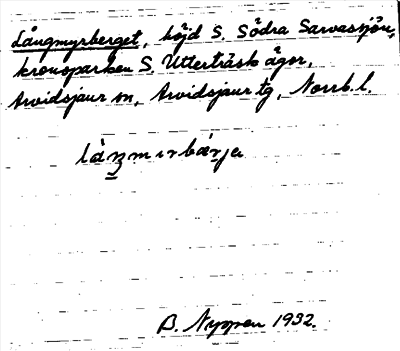 Långmyrberget, höjd S. Södra Sarvassjön,
kronoparken S. Utterträsk ägor,
Arvidsjaur sn, Arvidsjaur tg, Norrb. l.
B. Nyman 1932.